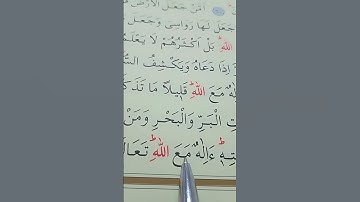 اَمَّنْ جَعَلَ الْاَرْضَ
جَعَلَ لَهَا رَوَاسِىَ وَجَعَلَ
اللّٰهِ بَلْ اَكْثَرُهُمْ لَا يَعْلَمُ
اِذَا دَعَاهُ وَيَكْشِفُ السُّ
لٰهٌ مَعَ اللّٰهِ قَلٖيلًا مَا تَذَكَّ
تِ الْبَرِّ وَالْبَحْرِ وَمَنْ
تِهٖ ءَاِلٰهٌ مَعَ اللّٰهِ تَعَالَ